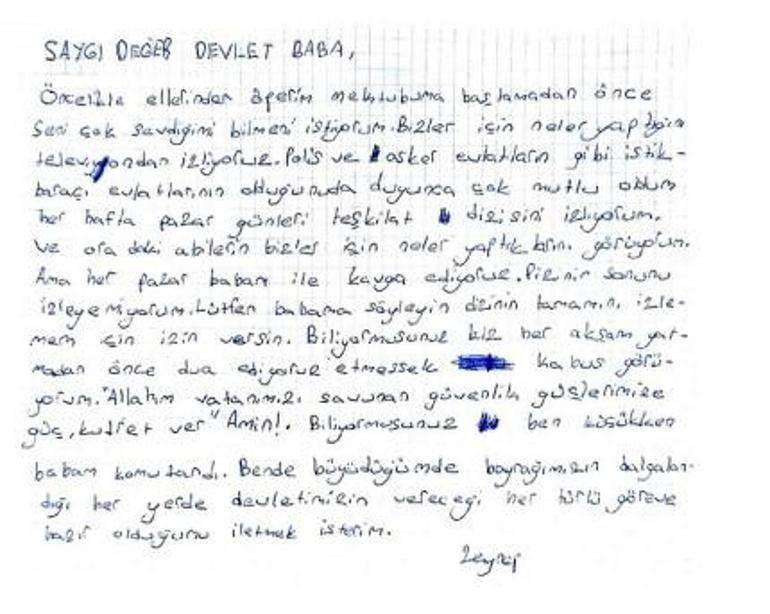 SAYGI DEĞER DEVLET BABA,
Öncelikle ellerinden öperim mektubuma başlamadan önce
Seni çok sevdiğimi bilmeni istiyorum. Bizler için neler yaptığın
televizyondan izliyoruz. Polis ve asker evlatların gibi istik-
baraçı evlatlarının olduğunuda duyunca çok mutlu oldum
her hafta pazar günleri teşkilat dizisini izliyorum.
Ve ora daki abilerin bizler için neler yaptıklarını görüyorum.
Ama her pazar babam ile kavga ediyoruz. Dizinin sonunu
izleyemiyorum. Lütfen babama söyleyin dizinin tamamını izle-
mem için izin versin. Biliyormusunuz biz her akşam yat-
madan önce dua ediyoruz etmessek kabus görü-
yorum. "Allahım vatanımızı savunan güvenlik güçlerimize
güç, kuffet ver" Amin!. Biliyormusunuz ben küçükken
babam komutandı. Bende büyüdüğümde bayrağımızın dalgalan-
dığı her yerde devletimizin vereceği her türlü göreve
hazır olduğumu iletmek isterim.
Zeynep